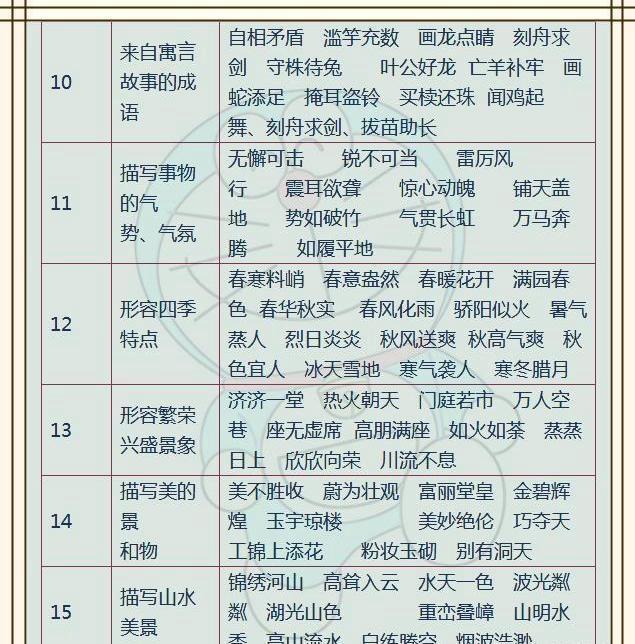 10
来自寓言
故事的成
语
自相矛盾 滥竽充数 画龙点睛 刻舟求
剑 守株待兔 叶公好龙 亡羊补牢 画
蛇添足 掩耳盗铃 买椟还珠 闻鸡起
舞、刻舟求剑、拔苗助长
11
描写事物
的气
势、气氛
无懈可击 锐不可当 雷厉风
行 震耳欲聋 惊心动魄 铺天盖
地 势如破竹 气贯长虹 万马奔
腾 如履平地
12
形容四季
特点
春寒料峭 春意盎然 春暖花开 满园春
色 春华秋实 春风化雨 骄阳似火 暑气
蒸人 烈日炎炎 秋风送爽 秋高气爽 秋
色宜人 冰天雪地 寒气袭人 寒冬腊月
13
形容繁荣
兴盛景象
济济一堂 热火朝天 门庭若市 万人空
巷 座无虚席 高朋满座 如火如荼 蒸蒸
日上 欣欣向荣 川流不息
14
描写美的
景
和物
美不胜收 蔚为壮观 富丽堂皇 金碧辉
煌 玉宇琼楼 美妙绝伦 巧夺天
工锦上添花 粉妆玉砌 别有洞天
15
描写山水
美景
锦绣河山 高耸入云 水天一色 波光粼
粼 湖光山色 重峦叠嶂 山明水
秀 高山流水 白练腾空 烟波浩渺